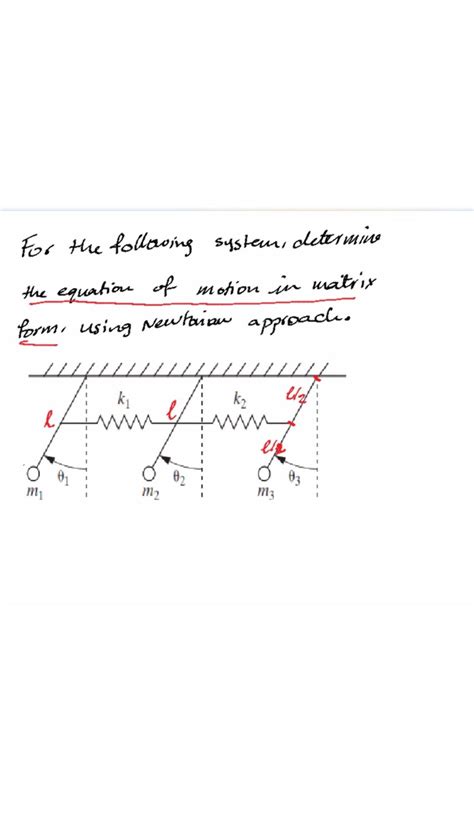 For the following system, determine
the equation of motion in matrix
form, using Newtonian approach.
k₁ k₂ l/2
l l
l/2
θ₁ θ₂ θ₃
m₁ m₂ m₃